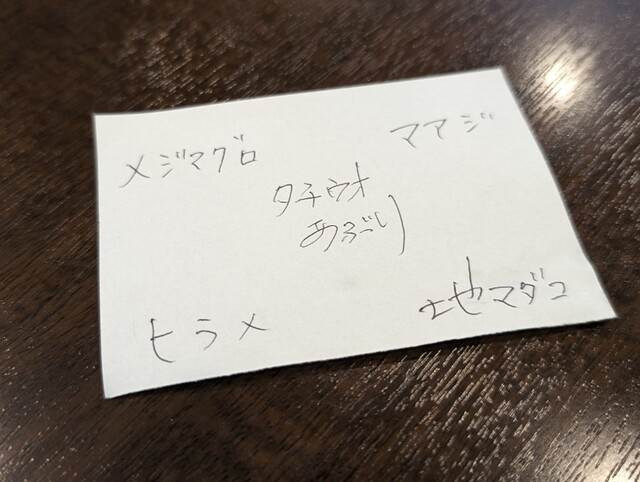 メジマグロ
マアジ
タチウオ
あぶり
ヒラメ
地マダコ